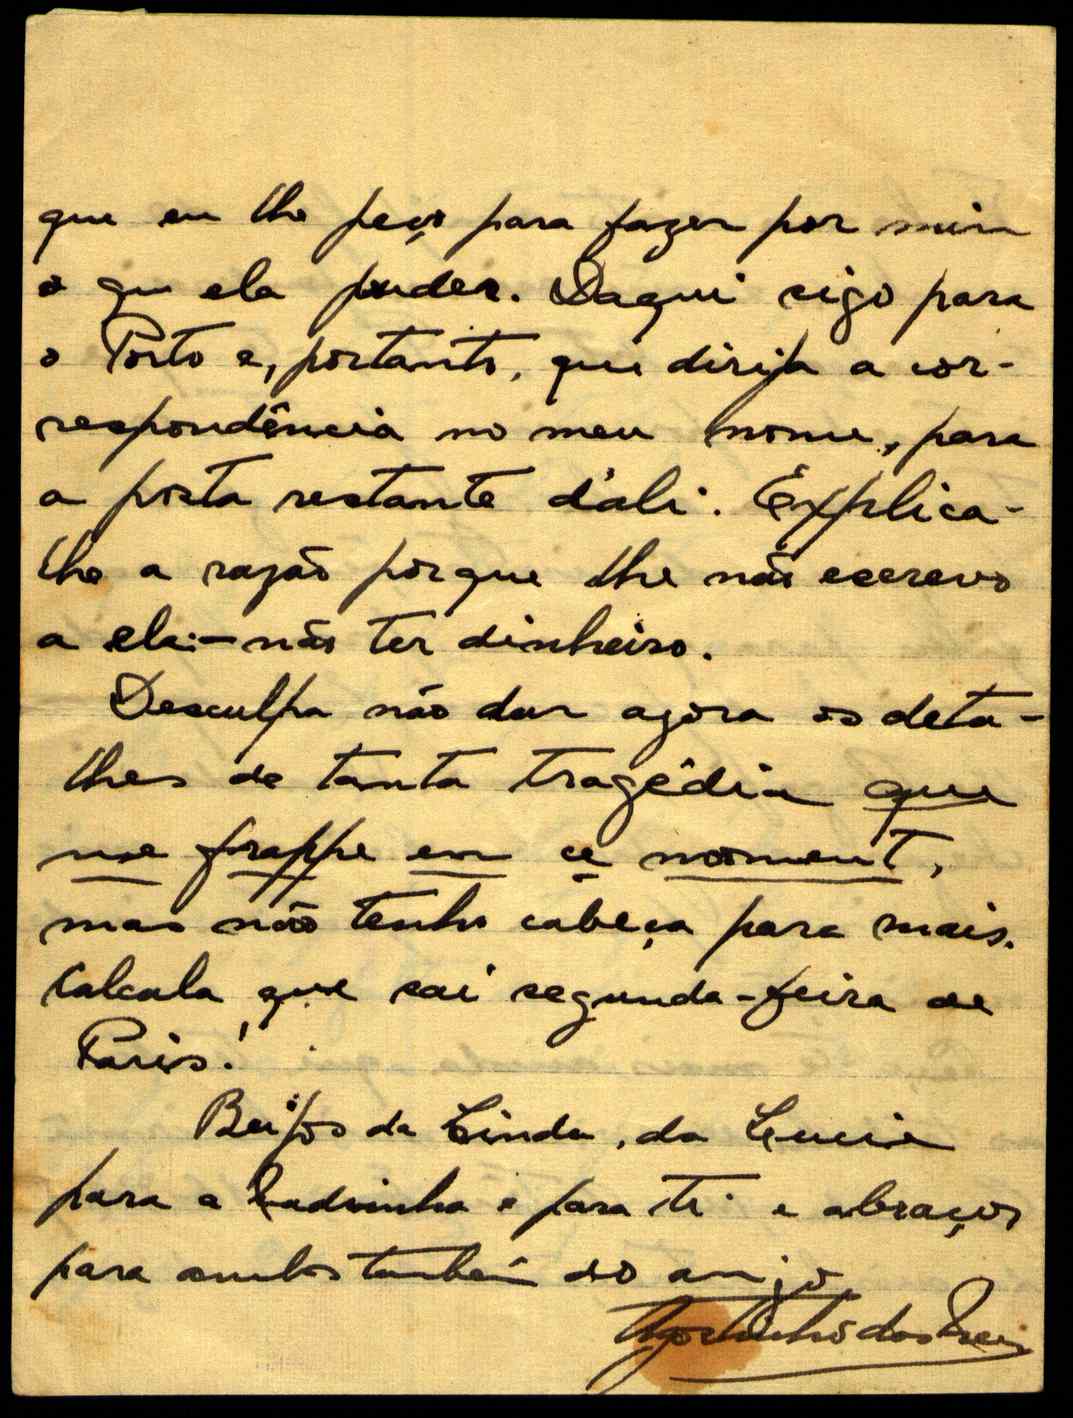 que eu lhe peço para fazer por mim
o que ela puder. Daqui sigo para
o Porto e, portanto, que dirija a cor-
respondência no meu nome, para
a posta restante d'ali. Explica-
lhe a razão porque lhe não escrevo
a ela:— não ter dinheiro.
Desculpa não dar agora os deta-
lhes de tanta tragédia que
me frappe en ce moment,
mas não tenho cabeça para mais.
Calcula que saí segunda-feira de
Paris!
Beijos da Linda, da Lucia
para a Zadrinha e para ti e abraços
para ambos também do amigo
Agostinho dos